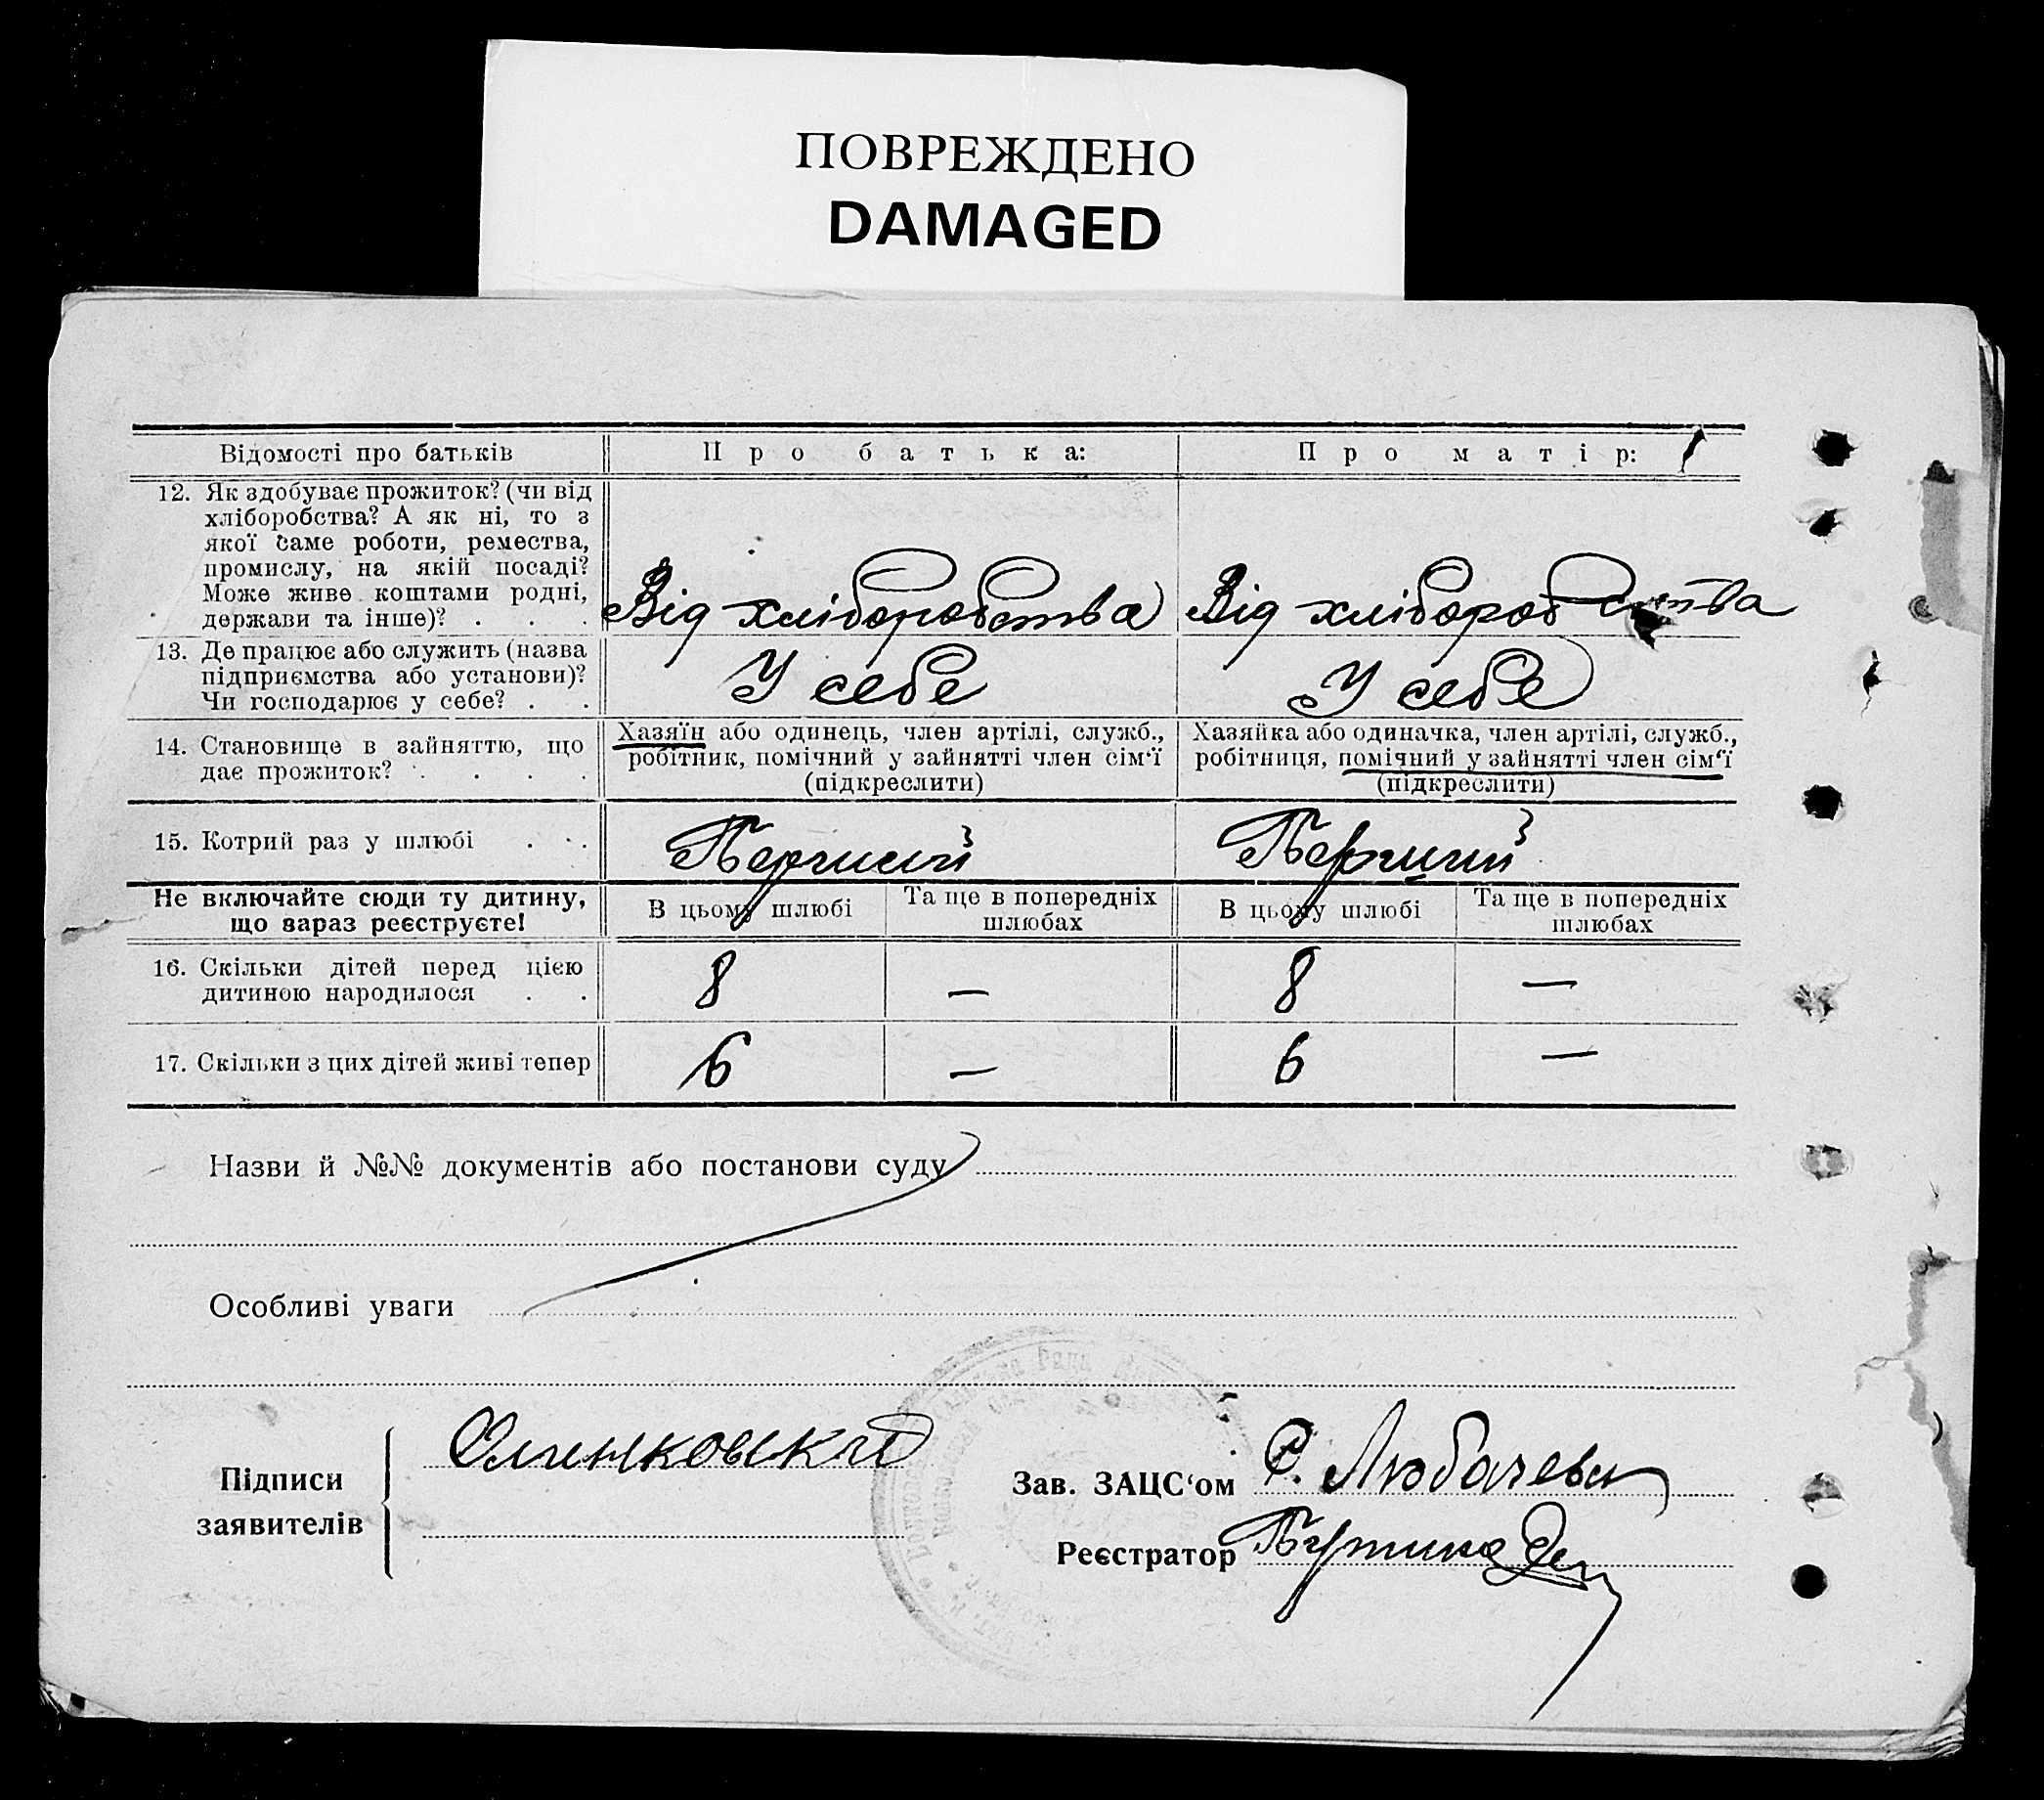 ПОВРЕЖДЕНО
DAMAGED
Відомості про батьків
Про батька:
Про матір:
12. Як здобуває прожиток? (чи від
хліборобства? А як ні, то з
якої саме роботи, ремества,
промислу, на якій посаді?
Може живе коштами родні,
держави та інше)? . . .
Від хліборобства
Від хліборобства
13. Де працює або служить (назва
підприємства або установи)?
Чи господарює у себе? . .
У себе
У себе
14. Становище в зайняттю, що
дає прожиток? . . . .
Хазяїн або одинець, член артілі, служб.,
робітник, помічний у зайнятті член сім‘ї
(підкреслити)
Хазяйка або одиначка, член артілі, служб.,
робітниця, помічний у зайнятті член сім‘ї
(підкреслити)
15. Котрий раз у шлюбі . . .
Перший
Перший
Не включайте сюди ту дитину,
що зараз реєструєте!
В цьому шлюбі
Та ще в попередніх
шлюбах
В цьому шлюбі
Та ще в попередніх
шлюбах
16. Скільки дітей перед цією
дитиною народилося . .
8
—
8
—
17. Скільки з цих дітей живі тепер
6
—
6
—
Назви й №№ документів або постанови суду
Особливі уваги
Підписи
заявителів
Зав. ЗАЦС‘ом
Реєстратор